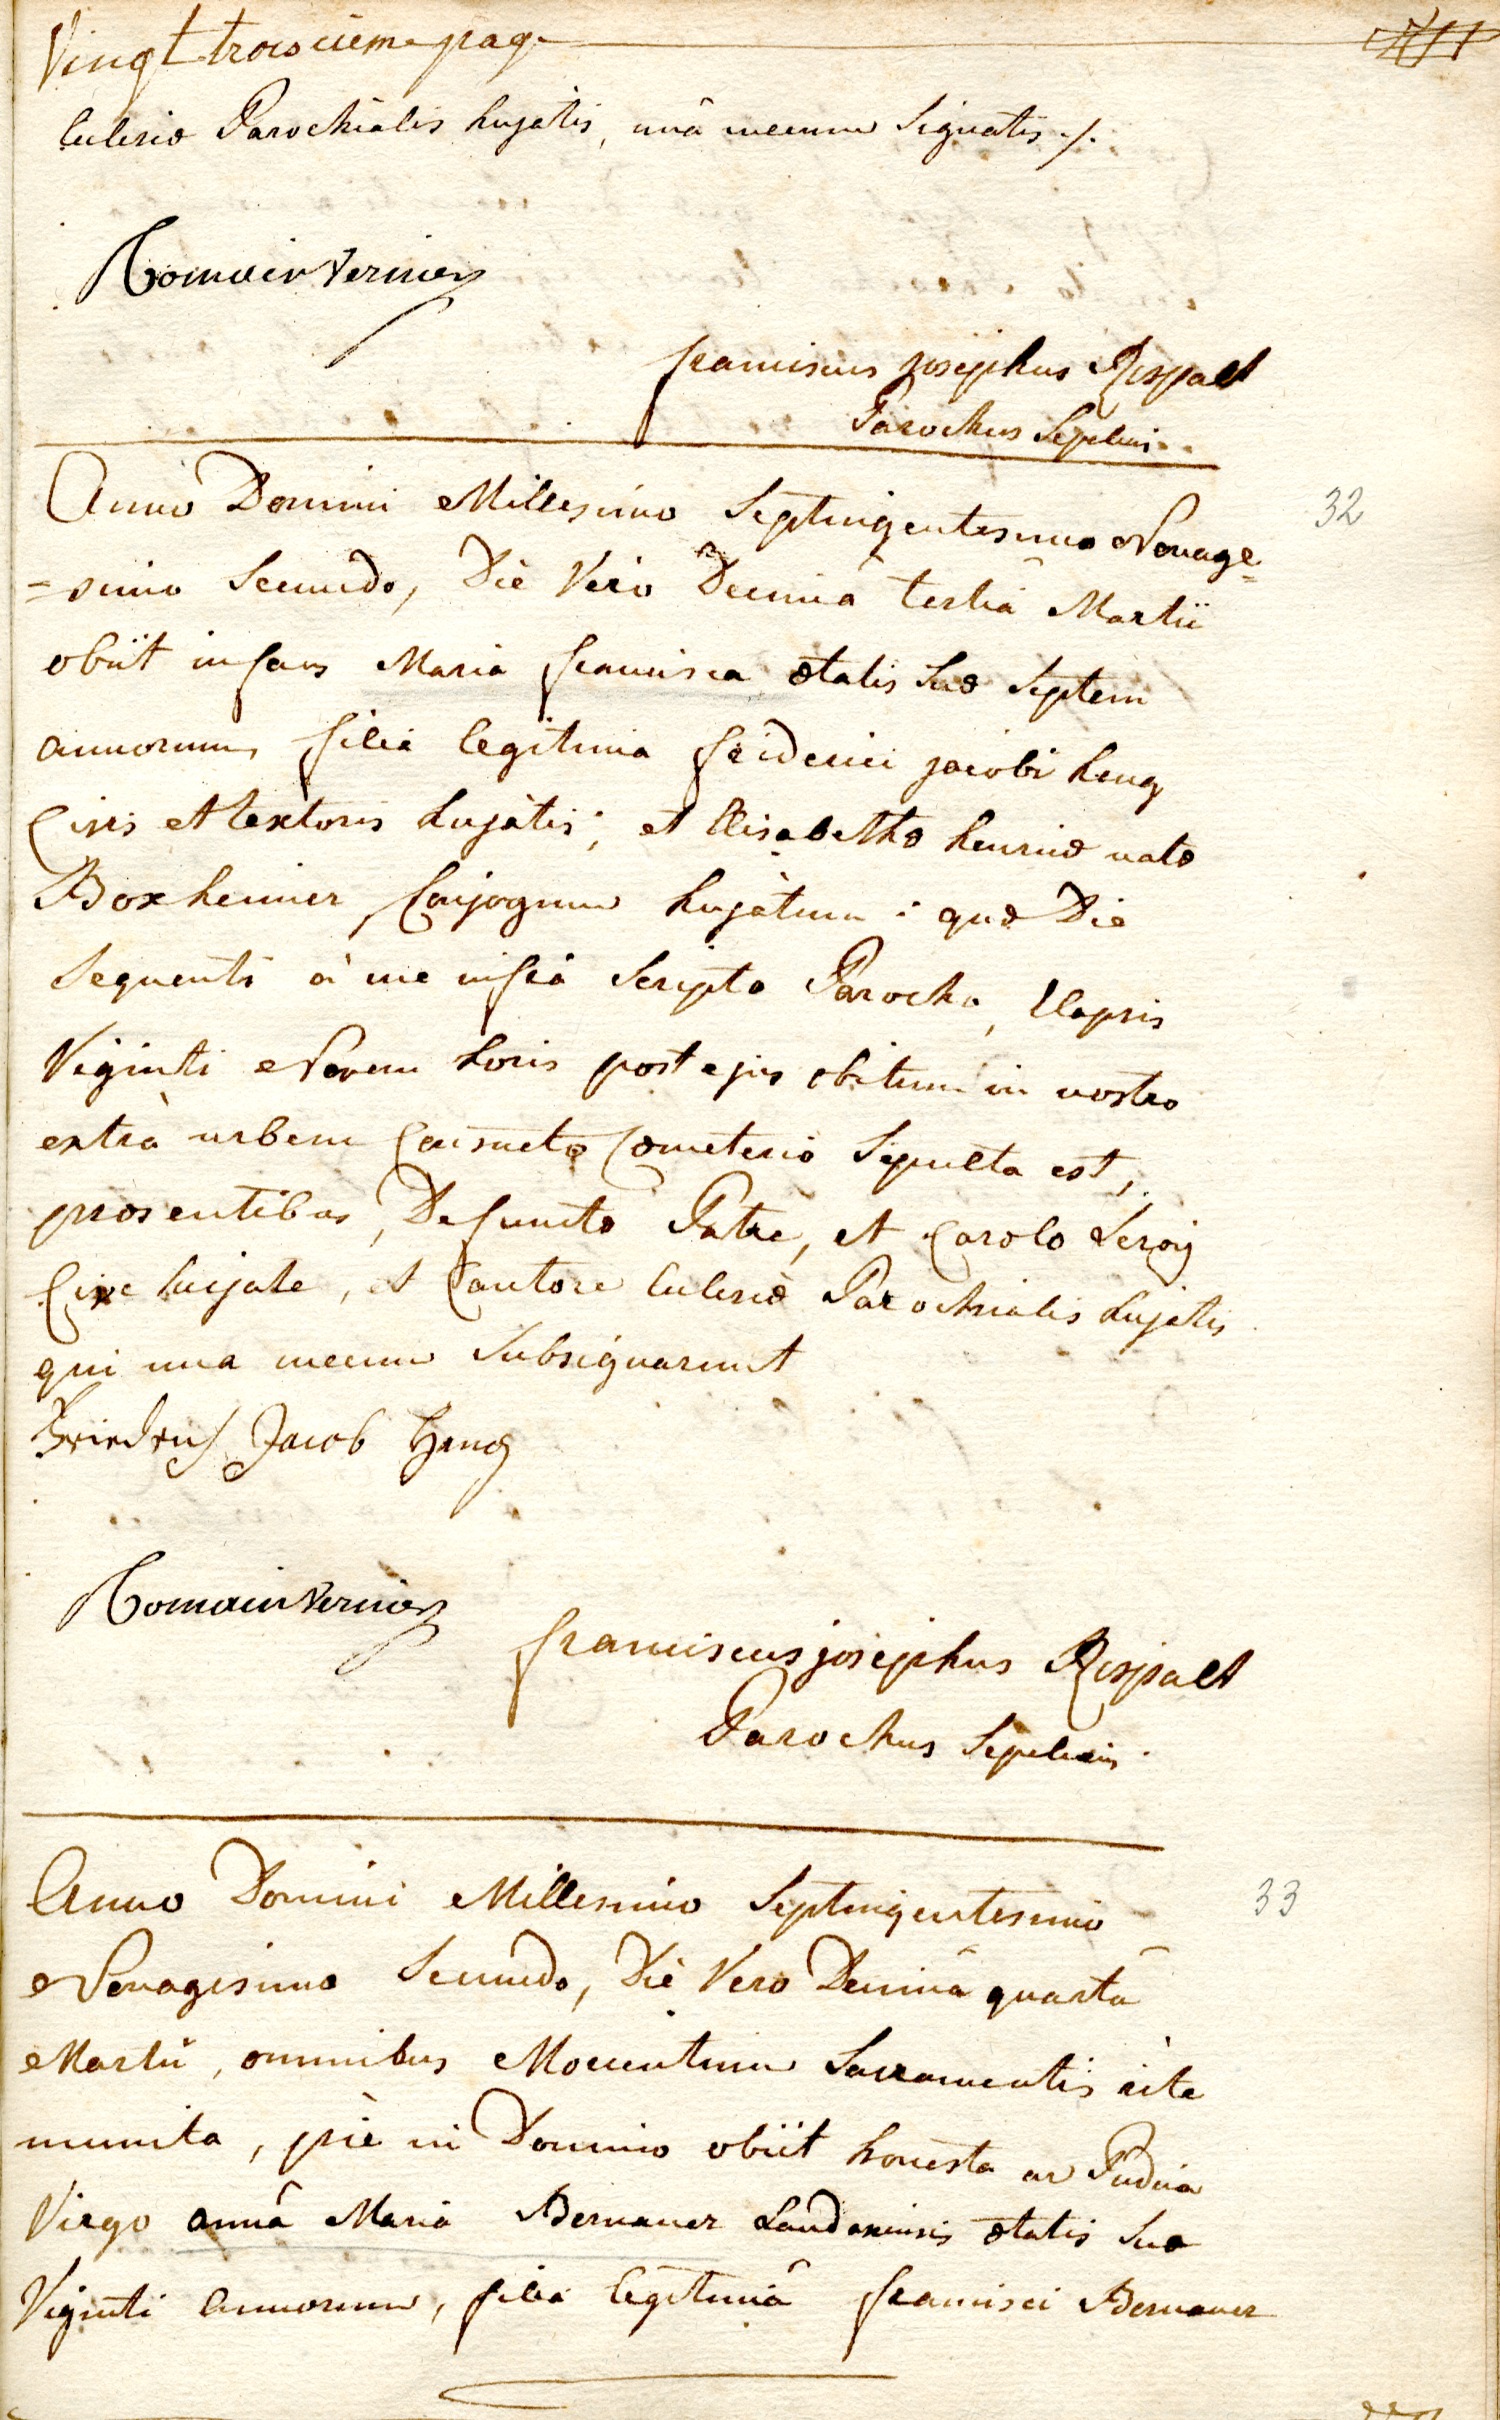 Vingt troiscieme page
Eclesiæ Parochialis hujatis, unâ mecum Signatis ./.
Romain Vernier
franciscus josephus Rispalt
Parochus Sepeliens
Anno Domini Millesimo Septingentesimo Nonage=
=simo Secundo, Diè Vero Decimâ tertiâ Martii
obiit infans Maria francisca ætatis Suæ Septem
annorum, filia legitima friderici jacobi heng
Civis et textoris hujatis; et Elisabethæ henricæ natæ
Boxheimer, Conjugum hujatum: quæ Die
Sequenti à me infrà Scripto Parocho, Elapsis
Viginti Novem horis post ejus obitum in nostro
extrà urbem Consueto Cœmeterio Sepulta est,
præsentibus, Defunctæ Patre, et Carolo Leroy
Cive hujate, et Cantore Eclesiæ Parochialis hujatis
qui una mecum Subsignarunt
Friedrich Jacob Heng
Romain Vernier
franciscus josephus Rispalt
Parochus Sepeliens
Anno Domini Millesimo Septingentesimo
Nonagesimo Secundo, Diè Vero Decimâ quartâ
Martii, omnibus Morientium Sacramentis rite
munita, piè in Domino obiit honesta ac Pudica
Virgo annâ Maria Bernauer Landaviensis ætatis Suæ
Viginti Annorum, filia legitimâ francisci Bernauer
32
33